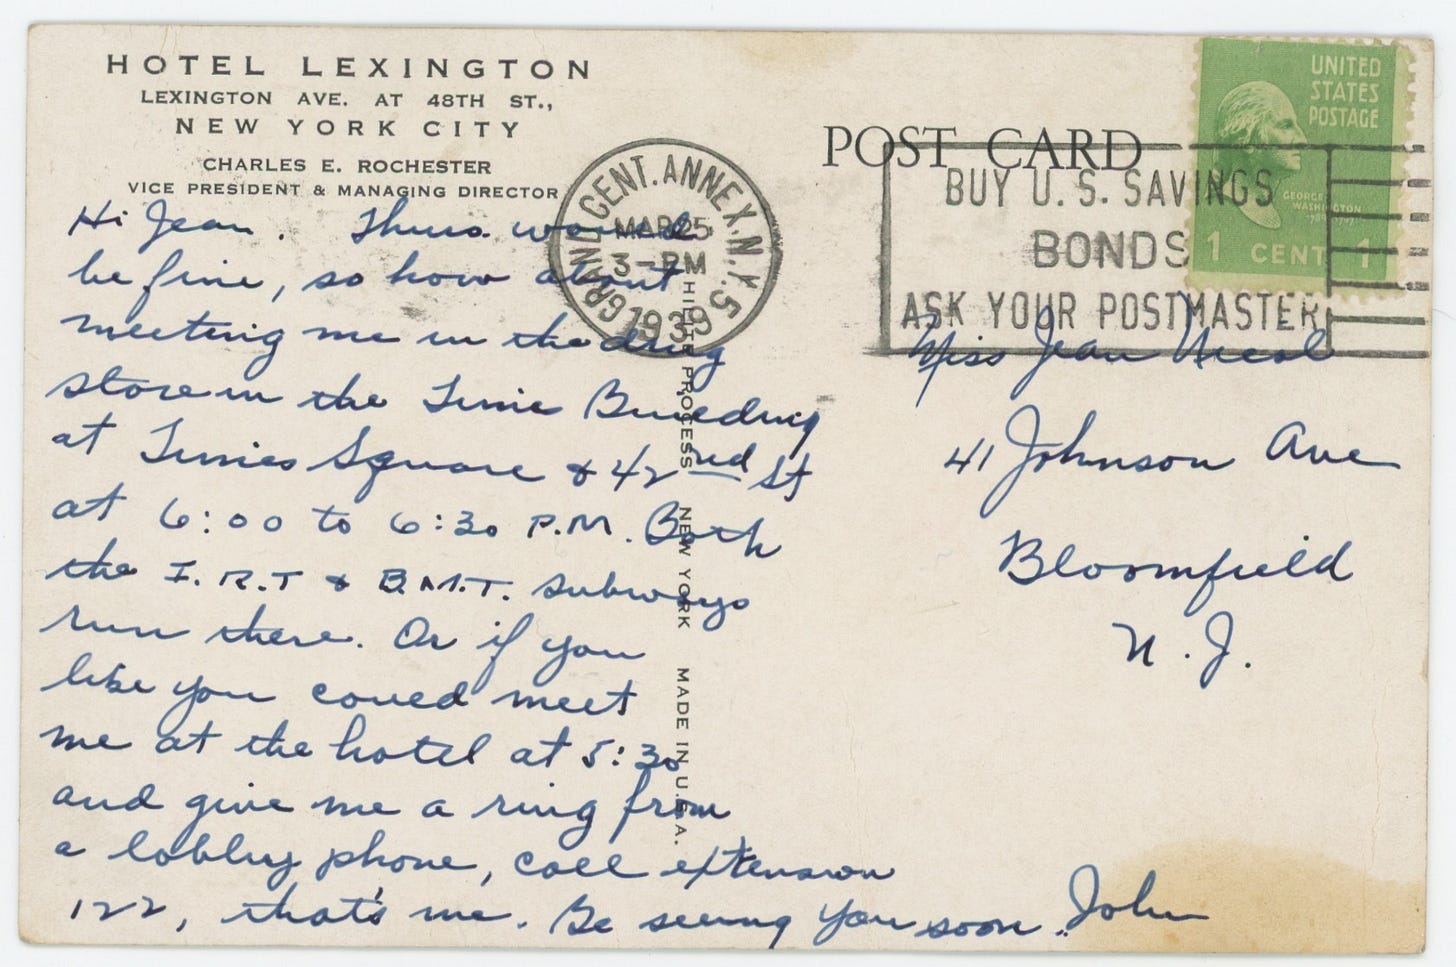 HOTEL LEXINGTON
LEXINGTON AVE. AT 48TH ST.,
NEW YORK CITY
CHARLES E. ROCHESTER
VICE PRESIDENT & MANAGING DIRECTOR
Hi Jean. Thurs. would
be fine, so how about
meeting me in the drug
store in the Times Building
at Times Square & 42nd St
at 6:00 to 6:30 P.M. Both
the I.R.T & B.M.T. subways
run there. Or if you
like you could meet
me at the hotel at 5:30
and give me a ring from
a lobby phone, call extension
122, that's me. Be seeing you soon.. John
GRAND CENT. ANNEX. N.Y. 5
MAR 25
3-PM
1939
PROCESS NEW YORK MADE IN U.S.A.
POST CARD
BUY U.S. SAVINGS
BONDS
ASK YOUR POSTMASTER
UNITED
STATES
POSTAGE
GEORGE
WASHINGTON
1 CENT 1
Miss Jean Nicol
41 Johnson Ave
Bloomfield
N.J.